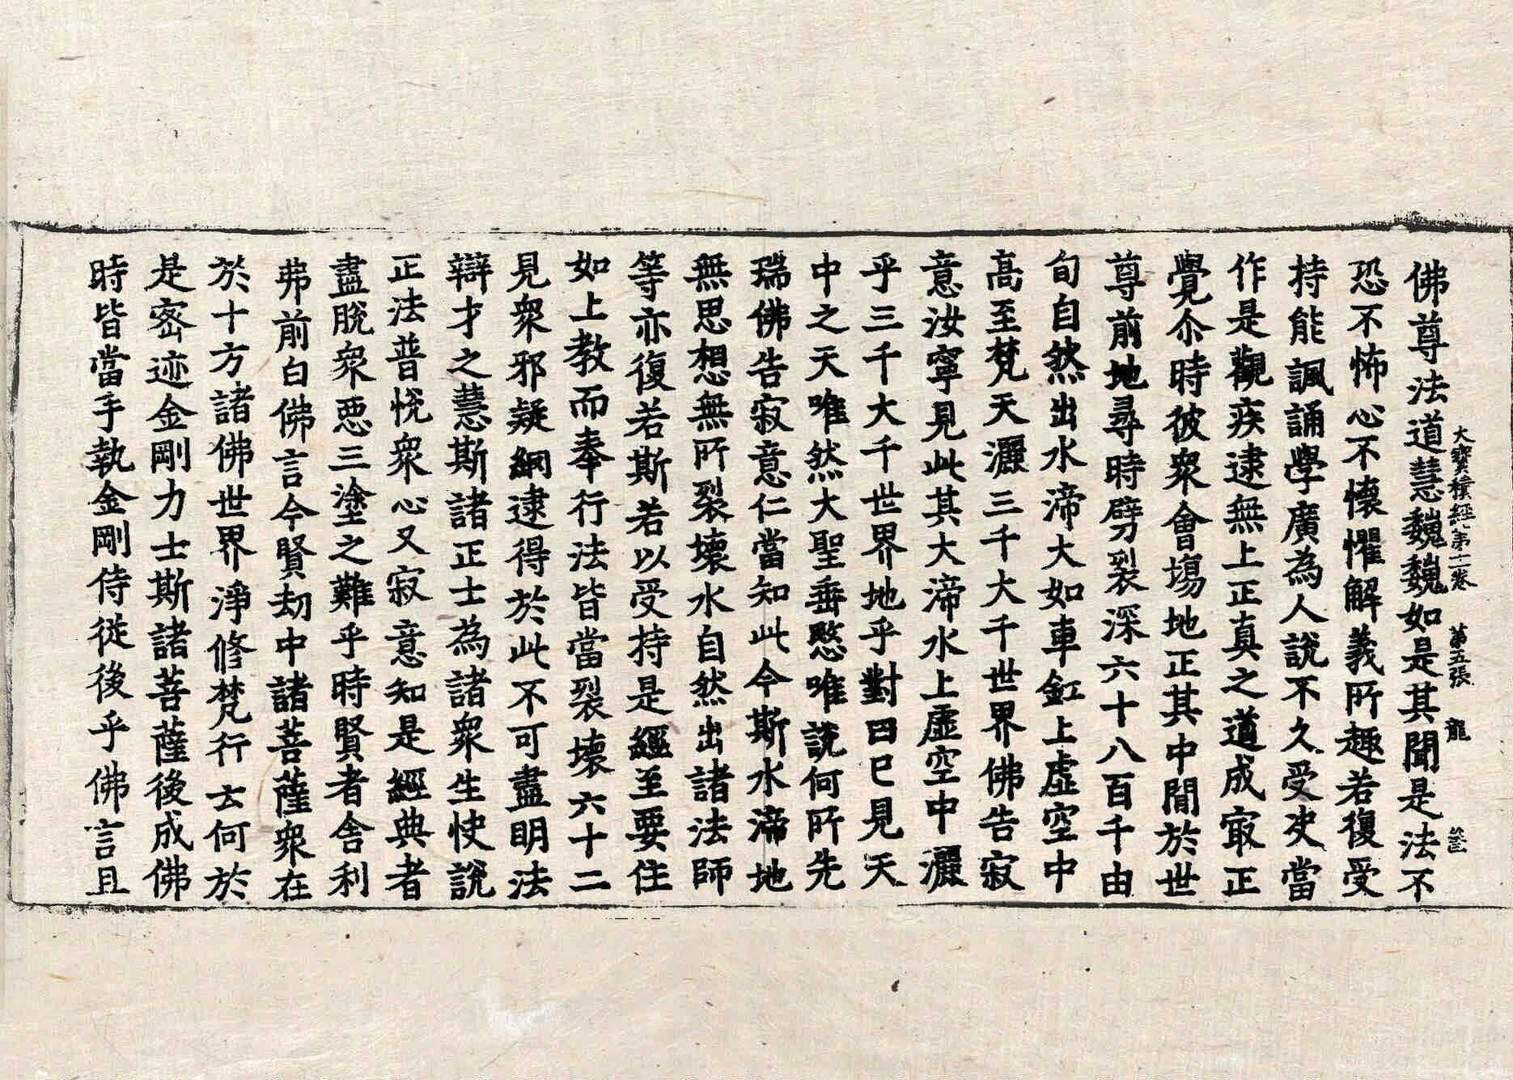 佛尊法道慧魏魏如是其聞是法不
大寶積經第十二卷 第五張 龍
恐不怖心不懷懼解義所趣若復受
持能諷誦學廣為人說不久受决當
作是觀疾逮無上正真之道成㝡正
覺尒時彼衆會塲地正其中閒於世
尊前地尋時劈裂深六十八百千由
旬自然出水渧大如車釭上虛空中
高至梵天灑三千大千世界佛告寂
意汝寧見此其大渧水上虛空中灑
乎三千大千世界地乎對曰已見天
中之天唯然大聖垂愍唯說何所先
瑞佛告寂意仁當知此今斯水渧地
無思想無所裂壞水自然出諸法師
等亦復若斯若以受持是經至要住
如上教而奉行法皆當裂壞六十二
見衆邪疑網逮得於此不可盡明法
辯才之慧斯諸正士為諸衆生快說
正法普悅衆心又寂意知是經典者
盡脫衆惡三塗之難乎時賢者舍利
弗前白佛言今賢劫中諸菩薩衆在
於十方諸佛世界淨修梵行云何於
是密迹金剛力士斯諸菩薩後成佛
時皆當手執金剛侍從後乎佛言且